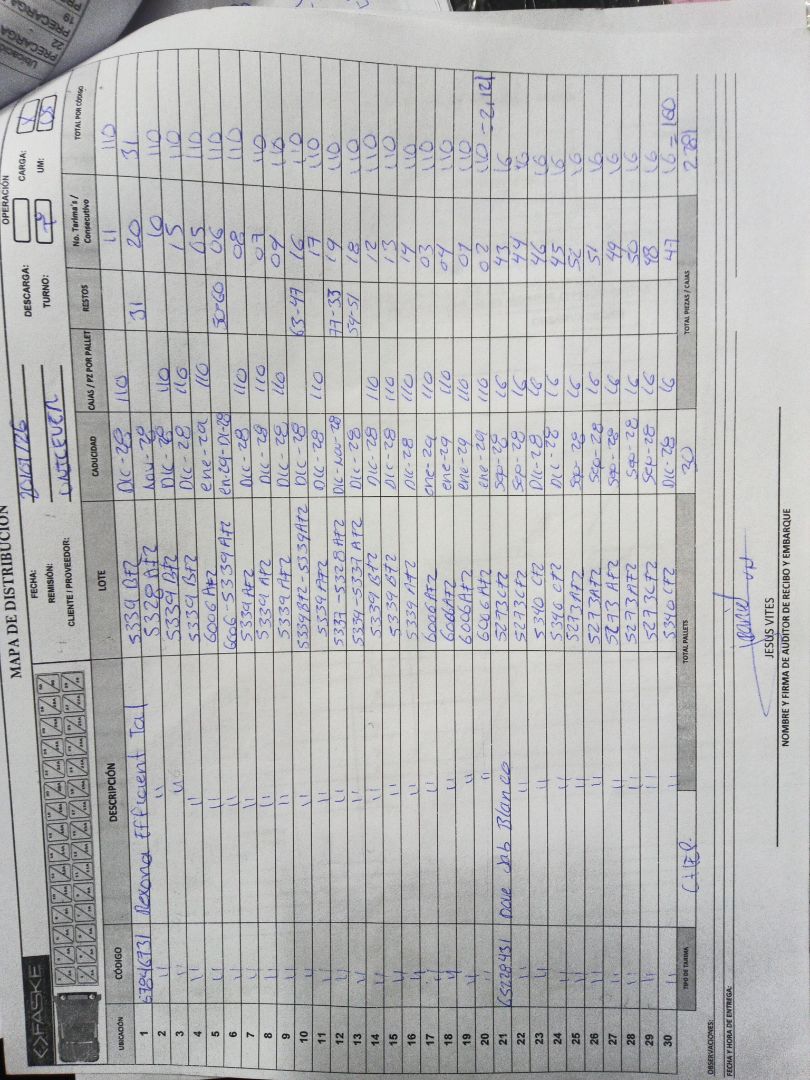 MAPA DE DISTRIBUCIÓN
FASKE
OPERACIÓN
FECHA: 20/01/26
DESCARGA:
CARGA: X
REMISIÓN:
TURNO:
UM:
CLIENTE / PROVEEDOR: UNILEVER
UBICACIÓN CÓDIGO DESCRIPCIÓN LOTE CADUCIDAD CAJAS / PZ POR PALLET RESTOS No. Tarima's / Consecutivo TOTAL POR CÓDIGO
1 67846731 Rexona Efficient Tal 5339 BF2 Dic-28 110 11 110
2 " " 5328 AF2 Nov-28 31 20 31
3 " " 5339 BF2 Dic-28 110 10 110
4 " " 5339 BF2 Dic-28 110 15 110
5 " " 6006 AF2 ene-29 110 05 110
6 " " 6006-5339 AF2 en-29-Di-28 50-60 06 110
7 " " 5339 AF2 Dic-28 110 08 110
8 " " 5339 AF2 Dic-28 110 07 110
9 " " 5339 AF2 Dic-28 110 09 110
10 " " 5339 BF2-5339AF2 Dic-28 63-47 16 110
11 " " 5339 AF2 Dic-28 110 17 110
12 " " 5337-5328 AF2 Dic-Nov-28 77-33 19 110
13 " " 5339-5337 AF2 Dic-28 59-51 18 110
14 " " 5339 BF2 Dic-28 110 12 110
15 " " 5339 BF2 Dic-28 110 13 110
16 " " 5339 AF2 Dic-28 110 14 110
17 " " 6006 AF2 ene-29 110 03 110
18 " " 6006 AF2 ene-29 110 04 110
19 " " 6006 AF2 ene-29 110 01 110
20 " " 6006 AF2 ene-29 110 02 110 = 2,121
21 65228431 Dove Jab Blanco 5273 CF2 Sep-28 16 43 16
22 " " 5273 CF2 Sep-28 16 44 16
23 " " 5340 CF2 Dic-28 16 46 16
24 " " 5340 CF2 Dic-28 16 45 16
25 " " 5273 AF2 Sep-28 16 52 16
26 " " 5273 AF2 Sep-28 16 51 16
27 " " 5273 AF2 Sep-28 16 49 16
28 " " 5273 AF2 Sep-28 16 50 16
29 " " 5273 CF2 Sep-28 16 48 16
30 " " 5340 CF2 Dic-28 16 47 16 = 160
TIPO DE TARIMA CHEP TOTAL PALLETS 30 TOTAL PIEZAS / CAJAS 2281
OBSERVACIONES:
FECHA Y HORA DE ENTREGA:
JESUS VITES
NOMBRE Y FIRMA DE AUDITOR DE RECIBO Y EMBARQUE